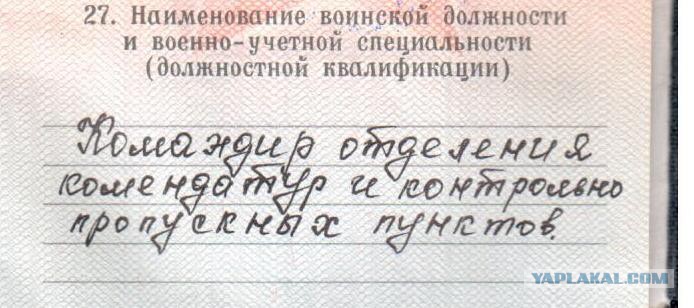 27. Наименование воинской должности
и военно-учетной специальности
(должностной квалификации)
Командир отделения
комендатур и контрольно
пропускных пунктов.
YAPLAKAL.COM